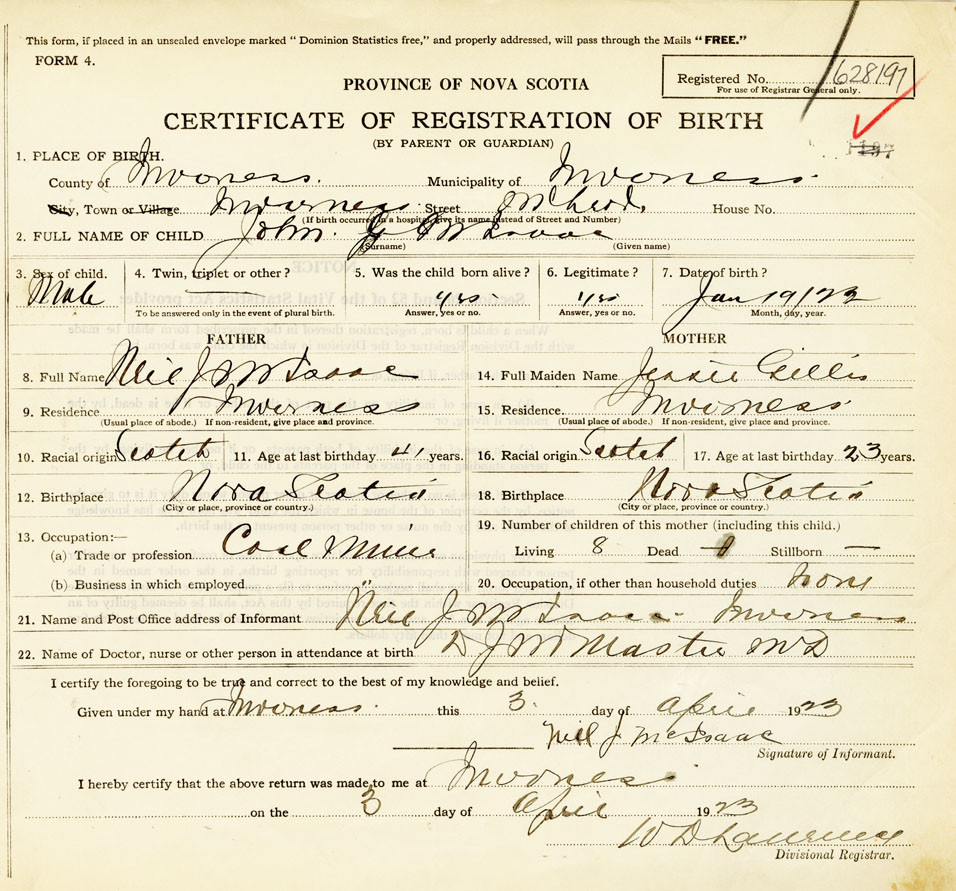 This form, if placed in an unsealed envelope marked "Dominion Statistics free," and properly addressed, will pass through the Mails "FREE."
FORM 4.
Registered No. 628197
For use of Registrar General only.
PROVINCE OF NOVA SCOTIA
CERTIFICATE OF REGISTRATION OF BIRTH
(BY PARENT OR GUARDIAN)
1. PLACE OF BIRTH.
County of Inverness. Municipality of Inverness.
City, Town or Village Inverness Street McLeod. House No.
(If birth occurred in a hospital, give its name instead of Street and Number)
2. FULL NAME OF CHILD John. McIsaac
(Surname) (Given name)
3. Sex of child. 4. Twin, triplet or other? 5. Was the child born alive? 6. Legitimate? 7. Date of birth?
Male yes yes Jan 19/23
To be answered only in the event of plural birth. Answer, yes or no. Answer, yes or no. Month, day, year.
FATHER MOTHER
8. Full Name Neil J McIsaac 14. Full Maiden Name Jessie Gillis
9. Residence Inverness 15. Residence. Inverness
(Usual place of abode.) If non-resident, give place and province. (Usual place of abode.) If non-resident, give place and province.
10. Racial origin Scotch 11. Age at last birthday 41 years. 16. Racial origin Scotch 17. Age at last birthday 23 years.
12. Birthplace Nova Scotia 18. Birthplace Nova Scotia
(City or place, province or country.) (City or place, province or country.)
13. Occupation:— 19. Number of children of this mother (including this child.)
(a) Trade or profession Coal Miner Living 8 Dead Stillborn —
(b) Business in which employed " 20. Occupation, if other than household duties none
21. Name and Post Office address of Informant Neil J McIsaac Inverness
22. Name of Doctor, nurse or other person in attendance at birth D J McMaster MD
I certify the foregoing to be true and correct to the best of my knowledge and belief.
Given under my hand at Inverness. this 3. day of April 1923
Neil J McIsaac
Signature of Informant.
I hereby certify that the above return was made to me at Inverness
on the 3 day of April 1923
W D Lawrence
Divisional Registrar.